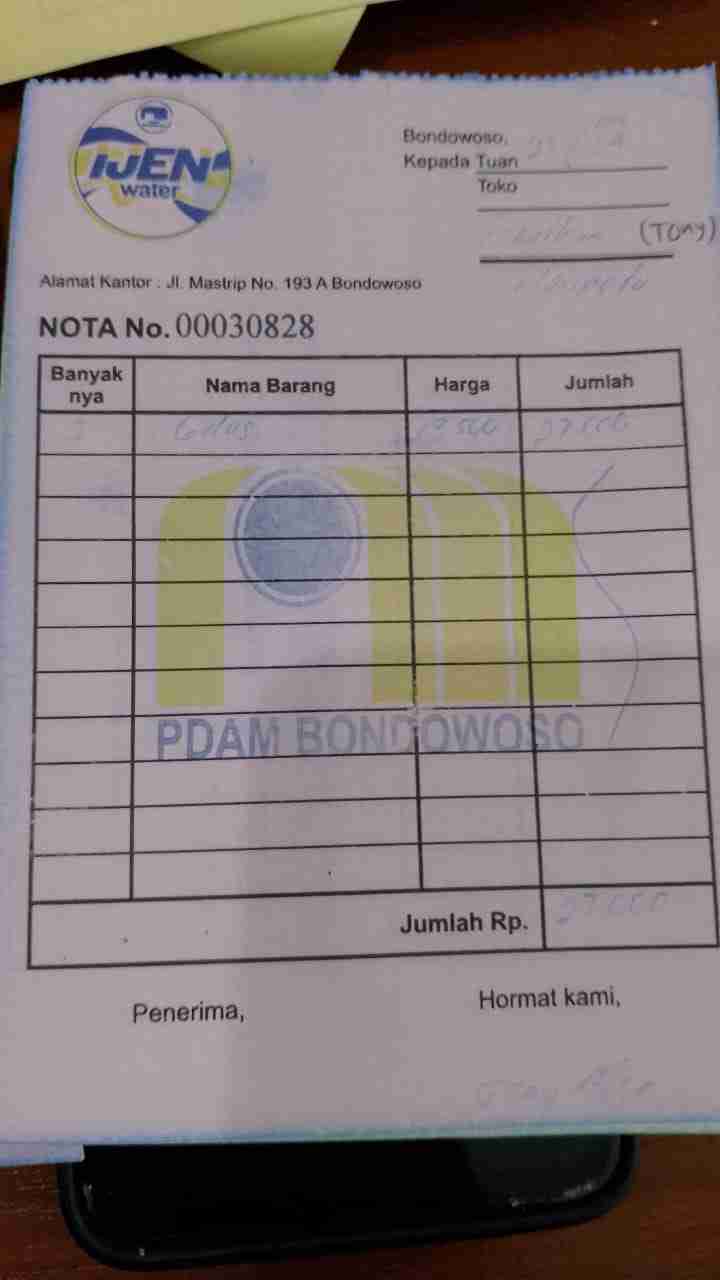 IJEN
water
Bondowoso,
Kepada Tuan
Toko
(Tony)
Alamat Kantor : Jl. Mastrip No. 193 A Bondowoso
NOTA No. 00030828
Banyak nya Nama Barang Harga Jumlah
Gelas 27.000
PDAM BONDOWOSO
Jumlah Rp. 27.000
Penerima, Hormat kami,